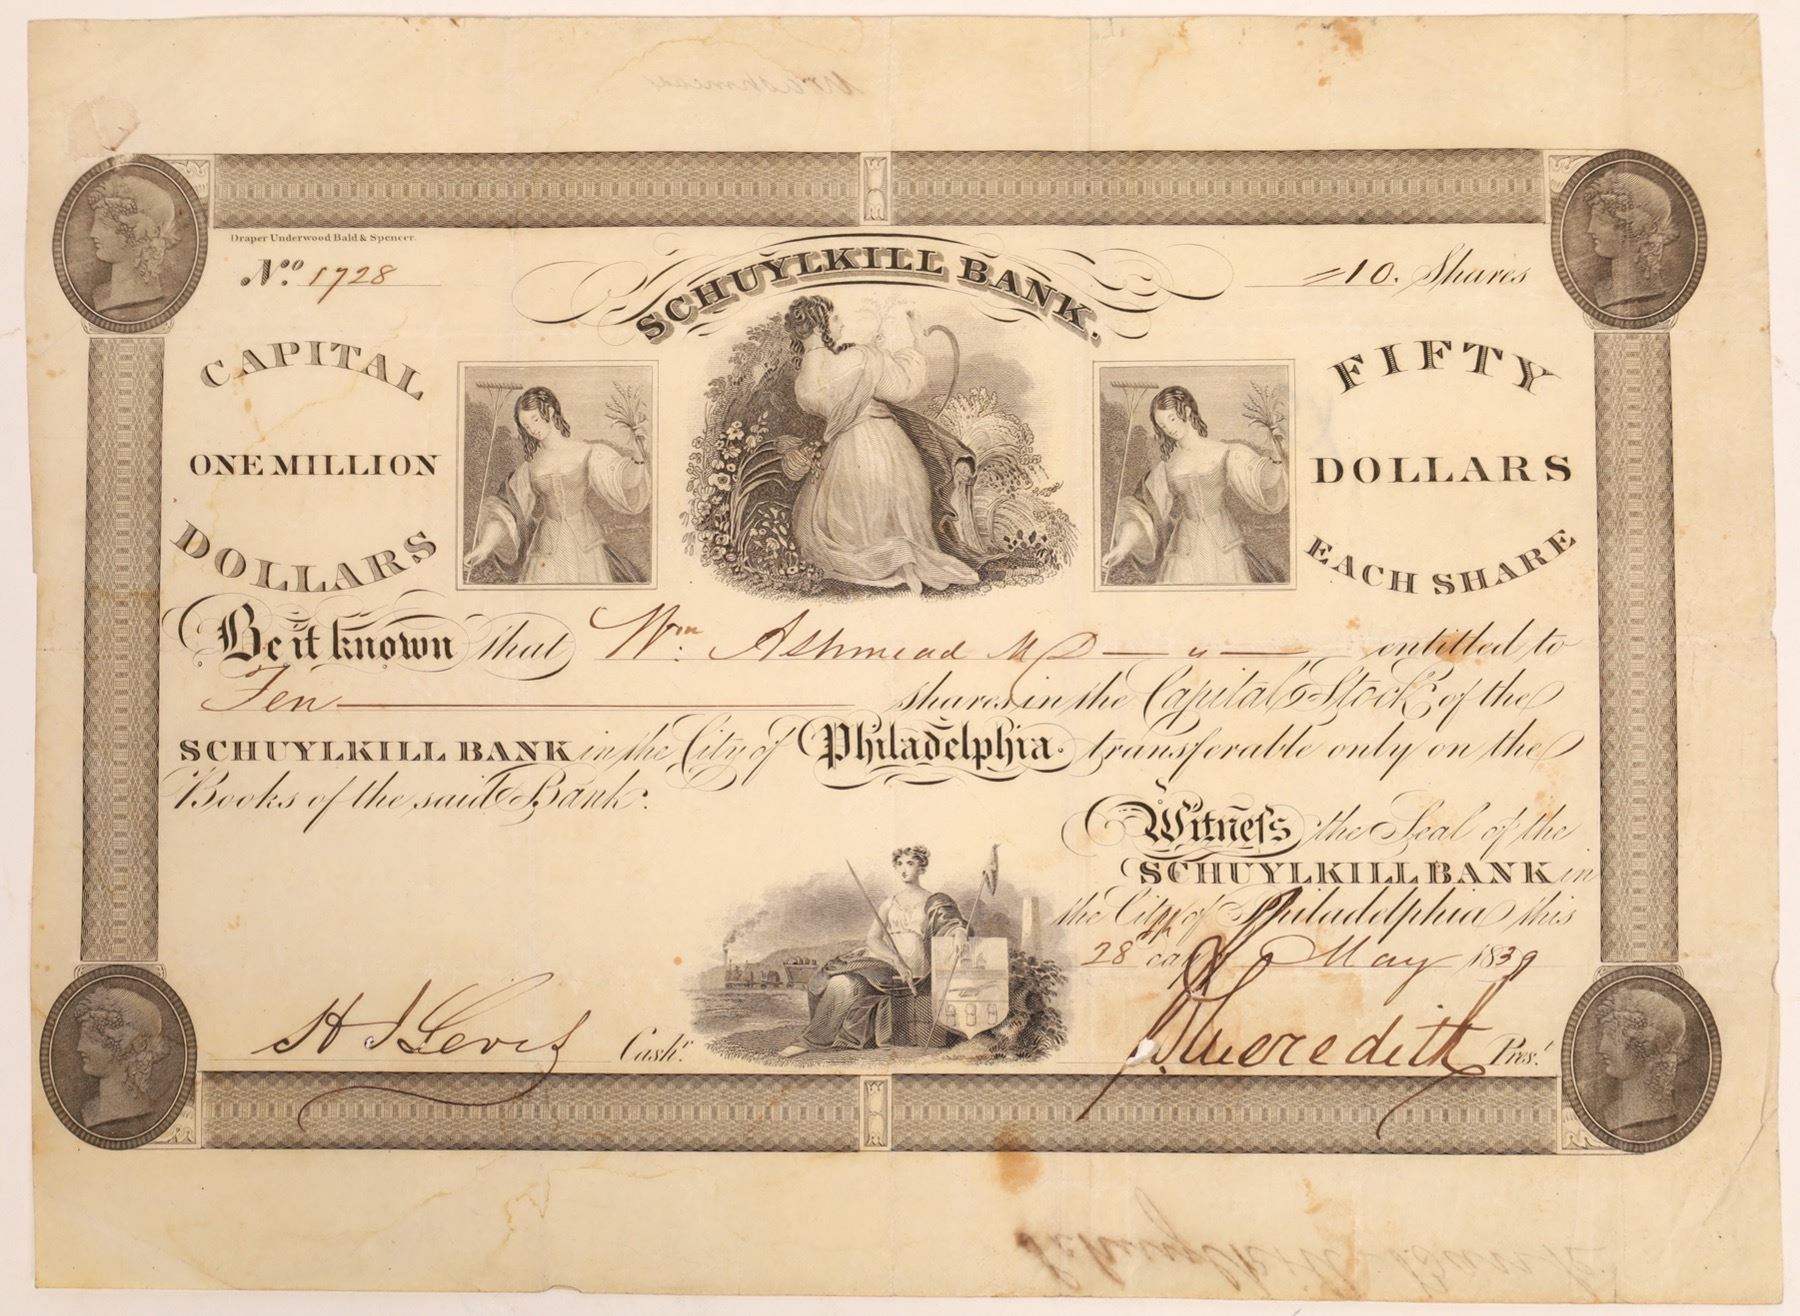 Draper Underwood Bald & Spencer.
No. 1728
SCHUYLKILL BANK.
=10. Shares
CAPITAL
ONE MILLION
DOLLARS
FIFTY
DOLLARS
EACH SHARE
Be it known That Wm Ashmead MD — " — entitled to
Ten shares in the Capital Stock of the
SCHUYLKILL BANK in the City of Philadelphia. transferable only on the
Books of the said Bank.
Witness the Seal of the
SCHUYLKILL BANK in
the City of Philadelphia this
28th day May 1839
H J Levis Cashr.
Meredith Prest.